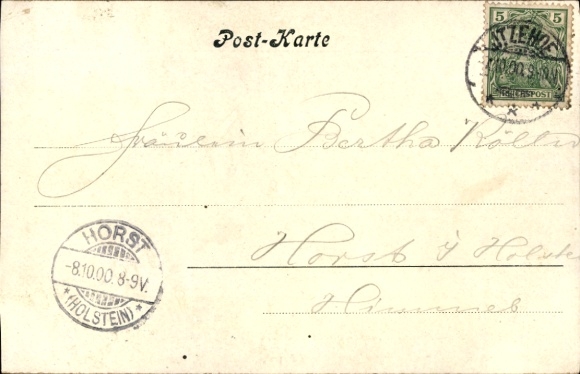 Post-Karte
5 5
REICHSPOST
ITZEHOE
10.00.
Fräulein Bertha Kölln
HORST
-8.10.00.8-9V.
*(HOLSTEIN)*
Horst i/ Holste